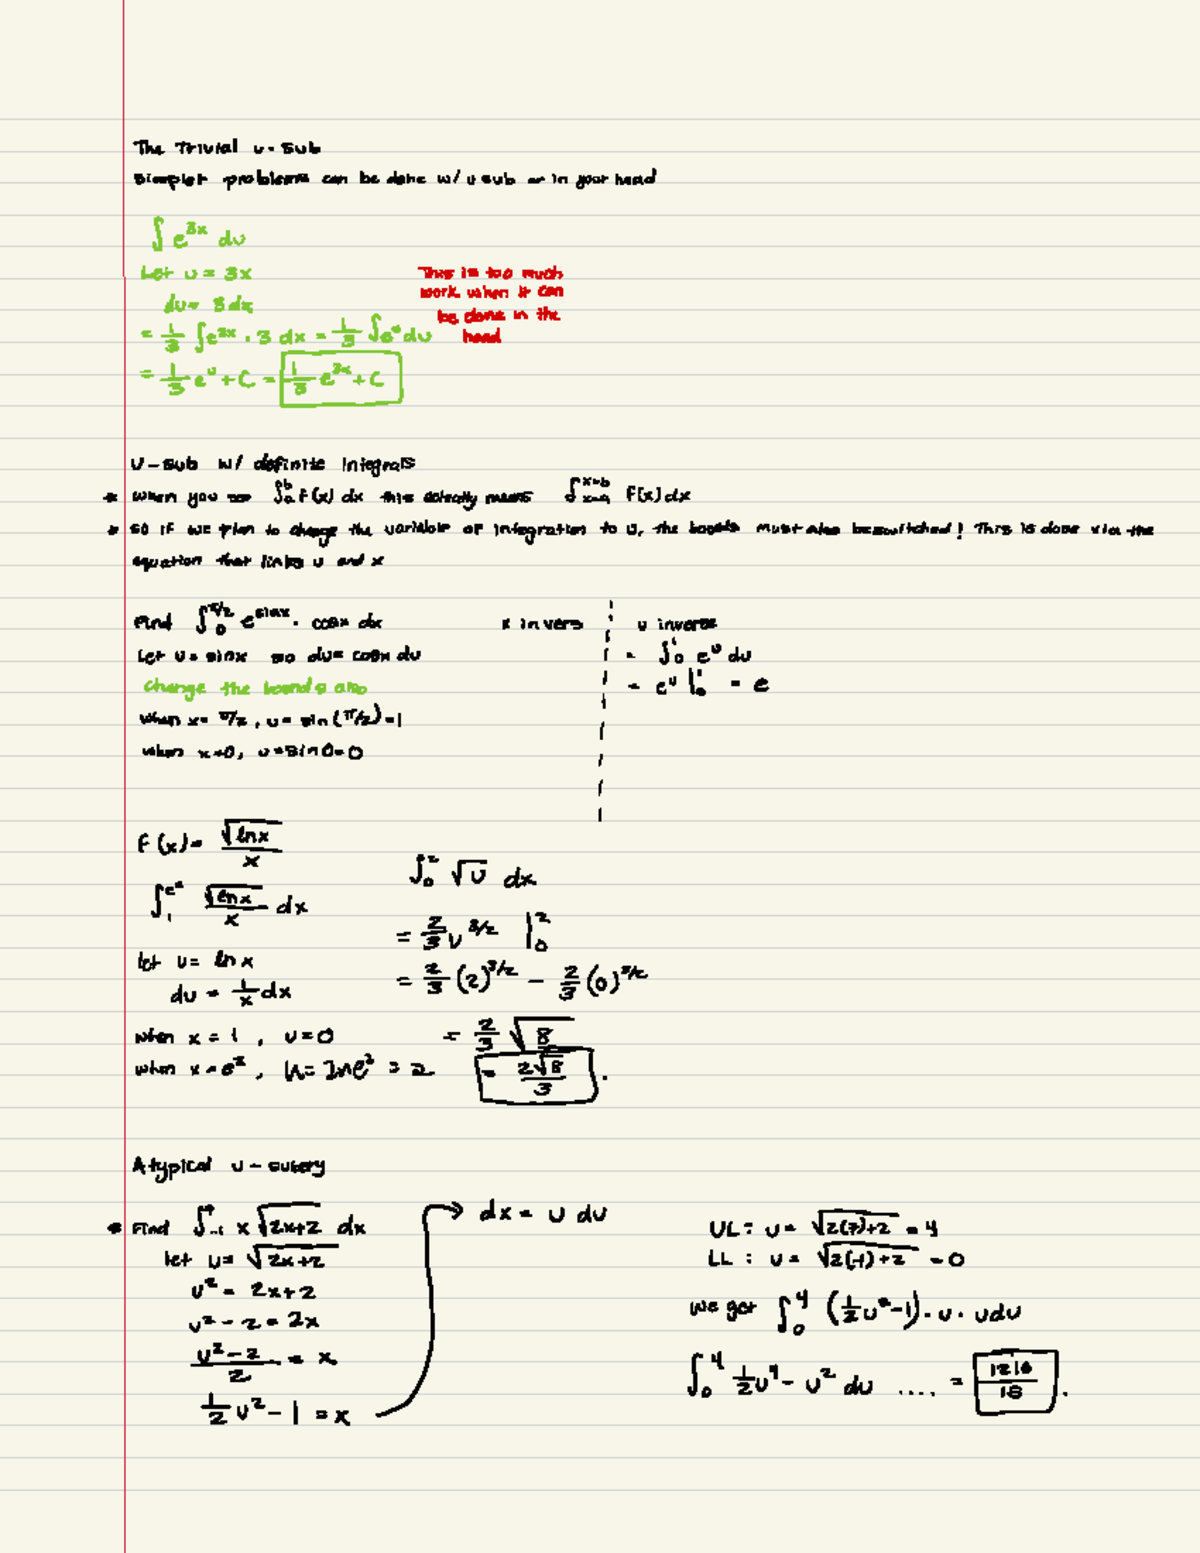 The Trivial u-sub
Simpler problems can be done w/ u sub or in your head
∫ e^{3x} du
Let u = 3x
du = 3 dx
= 1/3 ∫e^{3x} · 3 dx = 1/3 ∫e^u du
= 1/3 e^u + C = 1/3 e^{3x} + C
This is too much
work when it can
be done in the
head
U-sub w/ definite integrals
* when you see ∫_a^b f(x) dx this actually means ∫_{x=a}^{x=b} f(x) dx
* so if we plan to change the variable of integration to u, the bounds must also be switched! This is done via the
equation that links u and x
Find ∫_0^{π/2} e^{sinx} · cosx dx
Let u = sinx so du = cosx du
change the bounds also
when x = π/2, u = sin(π/2) = 1
when x=0, u = sin0 = 0
x invers
u inverse
= ∫_0^1 e^u du
= e^u |_0^1 = e
F(x) = √(ln x)/x
∫_1^{e^2} √(ln x)/x dx
let u = ln x
du = 1/x dx
when x = 1, u = 0
when x = e^2, u = ln e^2 = 2
∫_0^2 √u dx
= 2/3 u^{3/2} |_0^2
= 2/3 (2)^{3/2} - 2/3 (0)^{3/2}
= 2/3 √8
= 2√8/3 .
Atypical u-subery
* Find ∫_{-1}^7 x √(2x+2) dx
let u = √(2x+2)
u² = 2x+2
u² - 2 = 2x
(u² - 2)/2 = x
1/2 u² - 1 = x
dx = u du
UL: u = √(2(7)+2) = 4
LL: u = √(2(-1)+2) = 0
we get ∫_0^4 (1/2 u² - 1) · u · u du
∫_0^4 1/2 u^4 - u² du .... = 1216/15 .